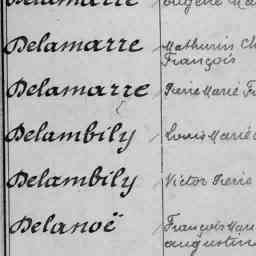 Delamarre Eugène
Delamarre Mathurin Ch
François
Delamarre Pierre Marie Fr
Delambily Louis Marie
Delambily Victor Pierre
Delanoë François Mar
augustin